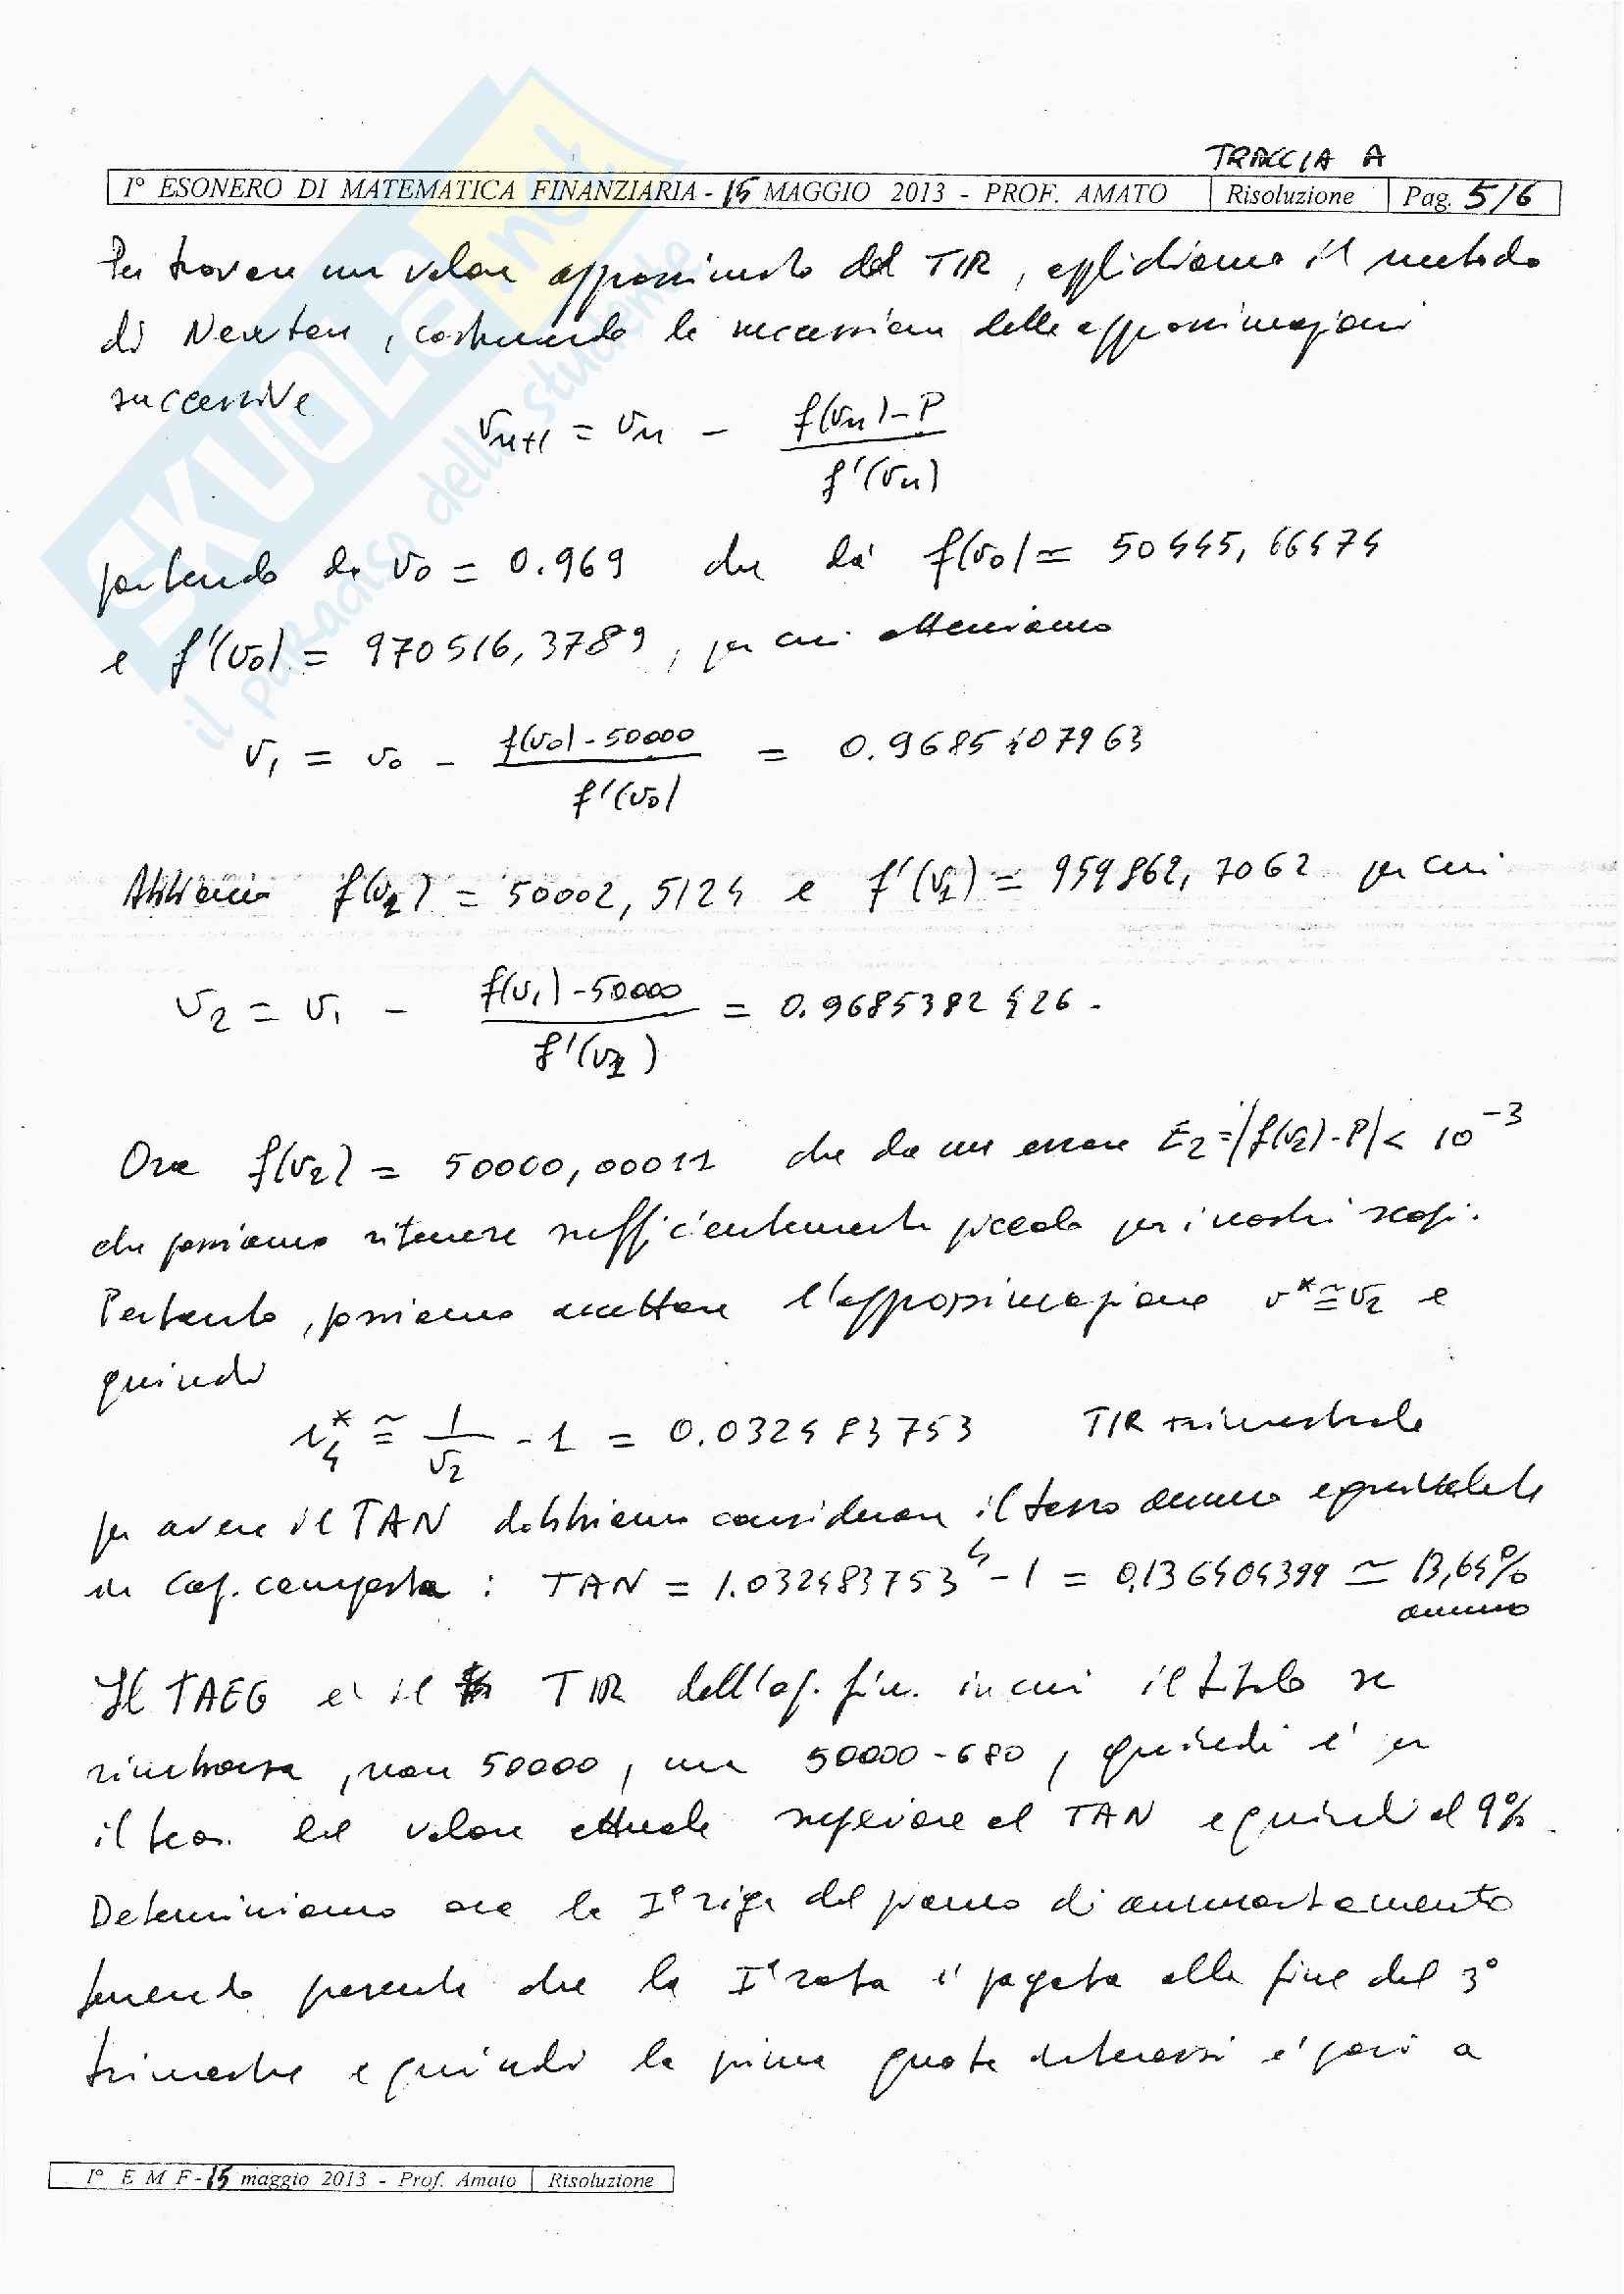 TRACCIA A
I° ESONERO DI MATEMATICA FINANZIARIA - 15 MAGGIO 2013 - PROF. AMATO Risoluzione Pag. 5/6
Per trovare un valore approssimato del TIR, applichiamo il metodo
di Newton, costruendo la successione delle approssimazioni
successive
vn+1 = vn - (f(vn) - P) / f'(vn)
partendo da v0 = 0.969 che dà f(v0) ≃ 50445,66474
e f'(v0) = 970516,3789, per cui otteniamo
v1 = v0 - (f(v0) - 50000) / f'(v0) = 0.9685407963
Abbiamo f(v1) = 50002,5124 e f'(v1) = 959862,7062 per cui
v2 = v1 - (f(v1) - 50000) / f'(v1) = 0.9685382426.
Ora f(v2) = 50000,00011 che da un errore E2 = |f(v2) - P| < 10^-3
che possiamo ritenere sufficientemente piccolo per i nostri scopi.
Pertanto, possiamo accettare l'approssimazione v* ≅ v2 e
quindi
i4* ≅ 1/v2 - 1 = 0.032483753 TIR trimestrale
per avere il TAN dobbiamo considerare il tasso annuo equivalente
in cap. composta : TAN = 1.032483753^4 - 1 = 0,136404399 ≃ 13,64%
annuo
Il TAEG è il TIR dell'op. fin. in cui il titolo si
rimborsa, non 50000, ma 50000-680, quindi è per
il teor. del valore attuale superiore al TAN e quindi al 9%.
Determiniamo ora la Iª riga del piano di ammortamento
tenendo presente che la Iª rata è pagata alla fine del 3°
trimestre e quindi la prima quota interessi è pari a
I° E M F - 15 maggio 2013 - Prof. Amato Risoluzione
SKUOLA.net
il paradiso dello studente